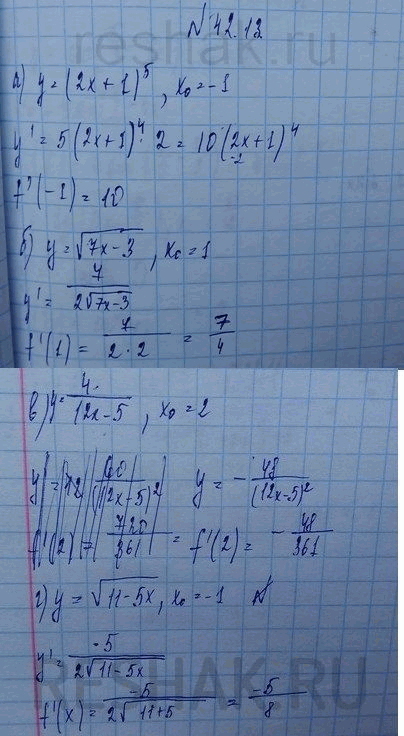 reshak.ru
N 42.13
а) y = (2x + 1)^5, x₀ = -1
y' = 5(2x+1)^4 · 2 = 10(2x+1)^4
-2
f'(-1) = 10
б) y = √(7x-3), x₀ = 1
y' = 7/(2√(7x-3))
f'(1) = 7/(2·2) = 7/4
в) y = 4/(12x-5), x₀ = 2
y = - 48/(12x-5)²
f'(2) = - 48/361
г) y = √(11-5x), x₀ = -1
y' = -5/(2√(11-5x))
f'(x) = -5/(2√(11+5)) = -5/8
RESHAK.RU